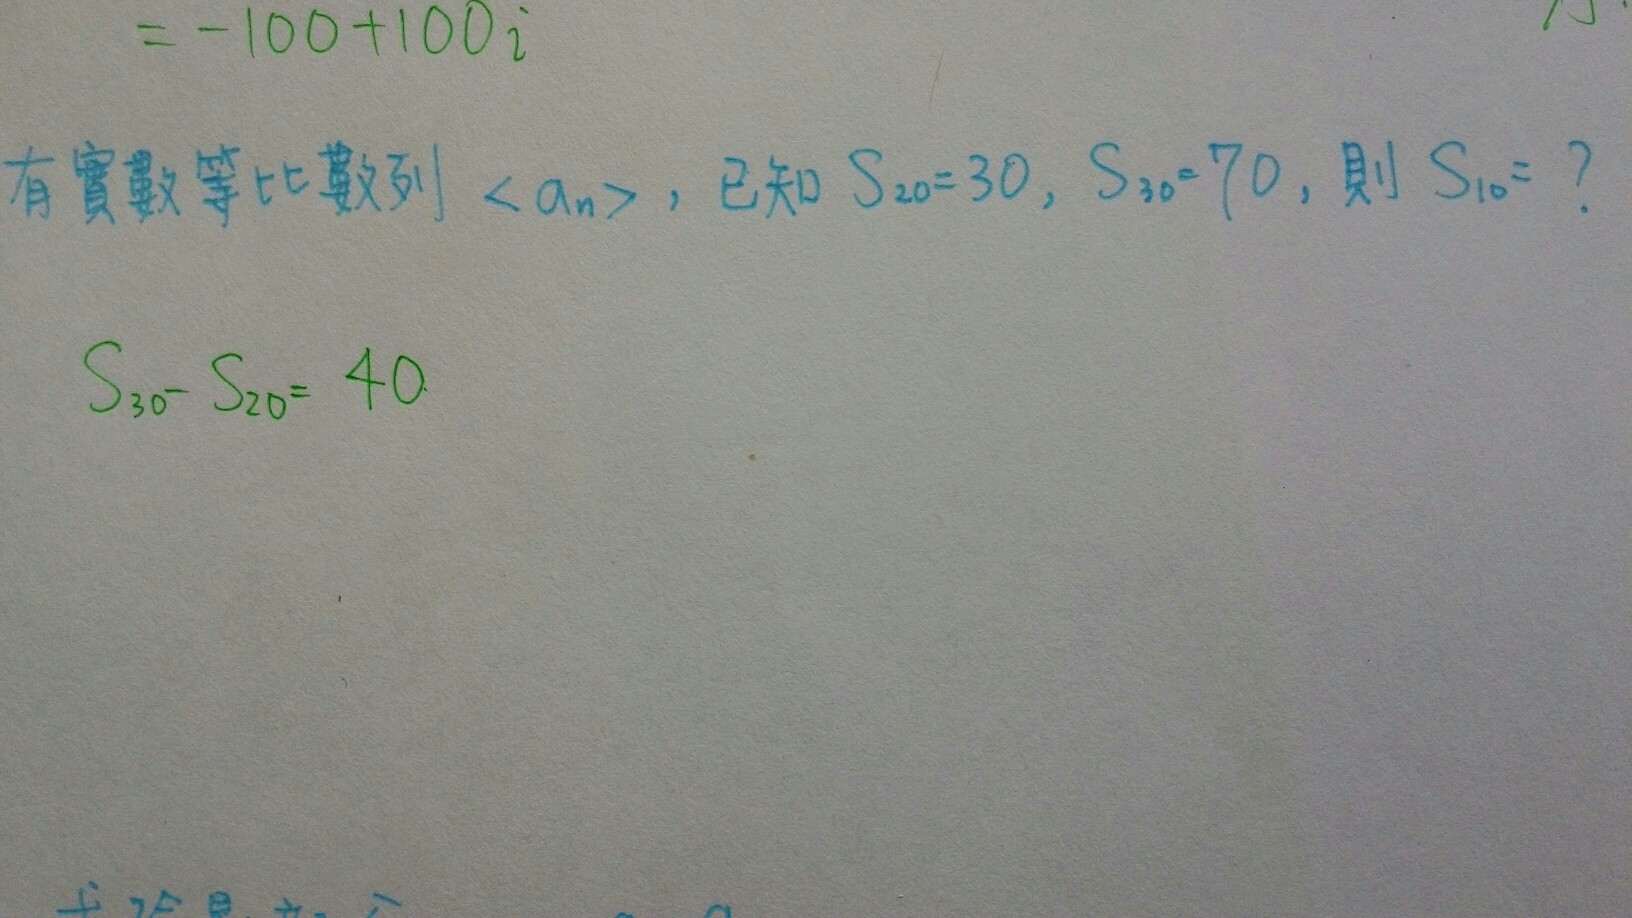 = -100+100i
有實數等比數列 <aₙ>, 已知 S₂₀=30, S₃₀=70, 則 S₁₀= ?
S₃₀- S₂₀= 40